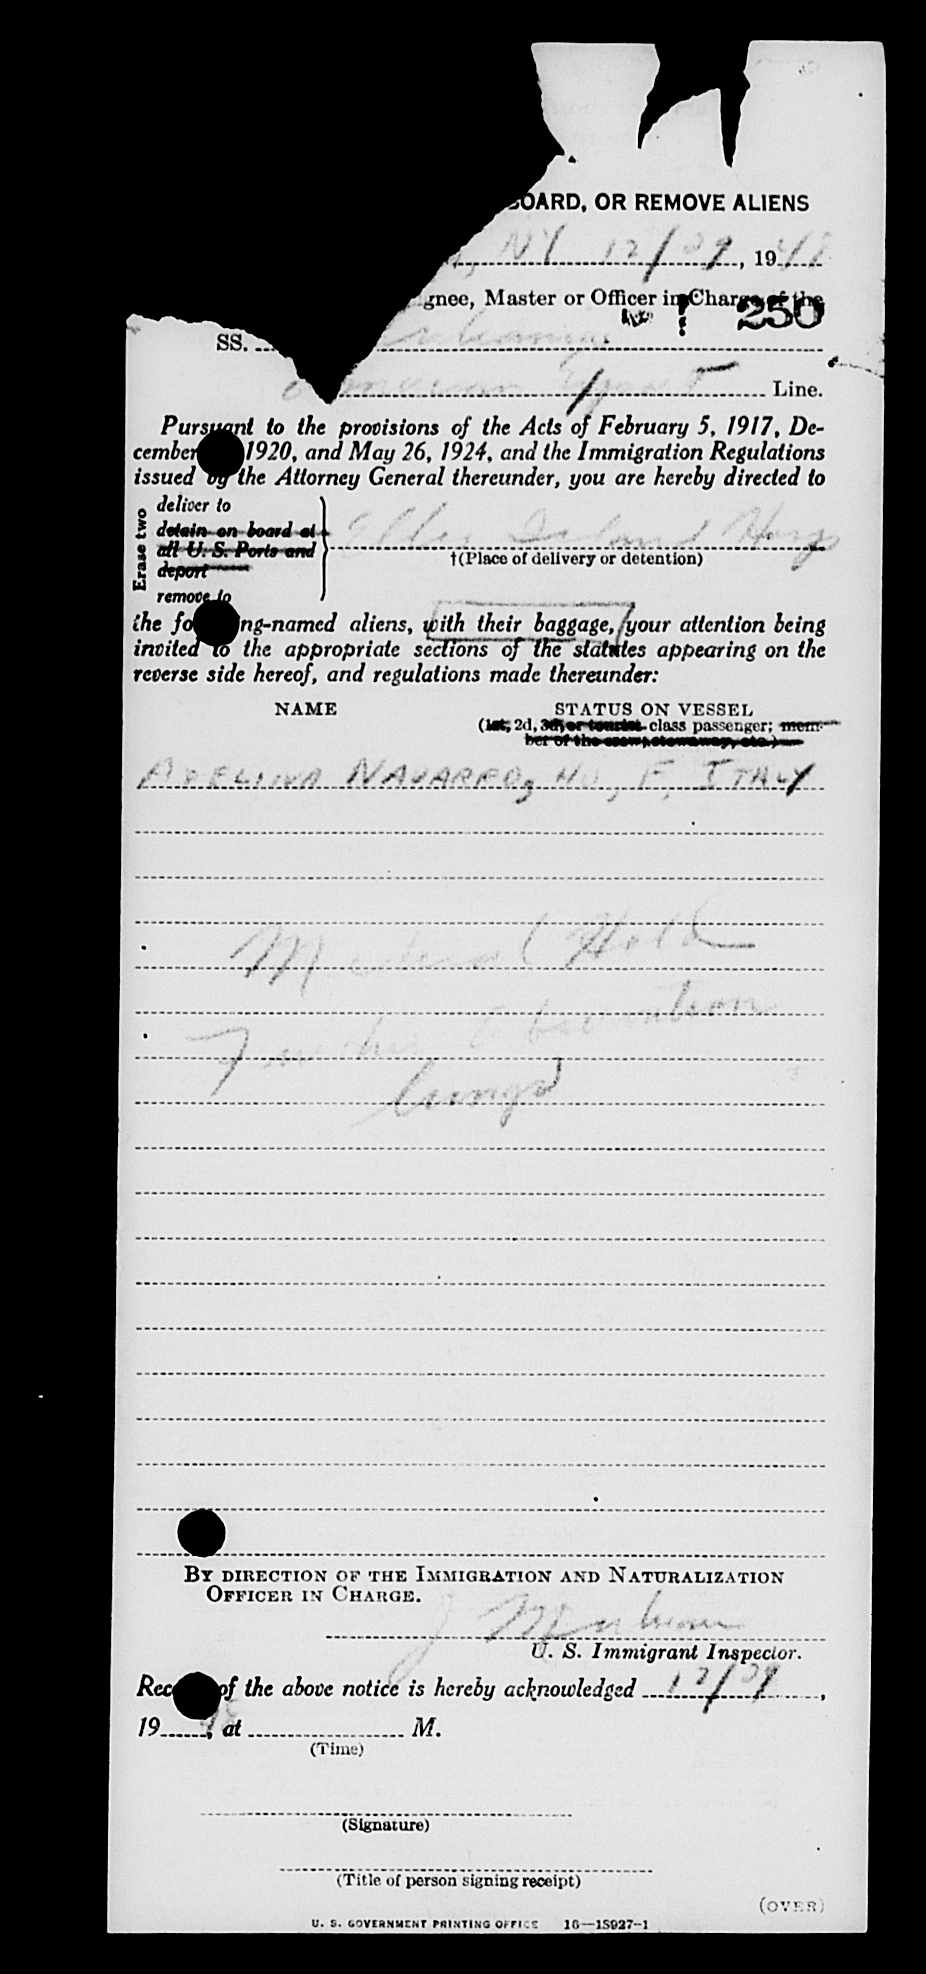 BOARD, OR REMOVE ALIENS
NY 12/29, 1948
gnee, Master or Officer in Charge of the
250
SS.
American Export Line.
Pursuant to the provisions of the Acts of February 5, 1917, De-
cember 1920, and May 26, 1924, and the Immigration Regulations
issued by the Attorney General thereunder, you are hereby directed to
Erase two
deliver to
detain on board at
all U. S. Ports and
deport
remove to
Ellis Island Hosp
†(Place of delivery or detention)
the fo ng-named aliens, with their baggage, your attention being
invited to the appropriate sections of the statutes appearing on the
reverse side hereof, and regulations made thereunder:
NAME STATUS ON VESSEL
(1st, 2d, 3d, or tourist class passenger; mem-
ber of the crew, stowaway, etc.)
ADELINA NAVARRO, 40, F, ITALY
Medical Hold
Further Observation
lungs
BY DIRECTION OF THE IMMIGRATION AND NATURALIZATION
OFFICER IN CHARGE.
U. S. Immigrant Inspector.
Rec of the above notice is hereby acknowledged 12/29,
1948, at M.
(Time)
(Signature)
(Title of person signing receipt)
(OVER)
U. S. GOVERNMENT PRINTING OFFICE 16—18927-1